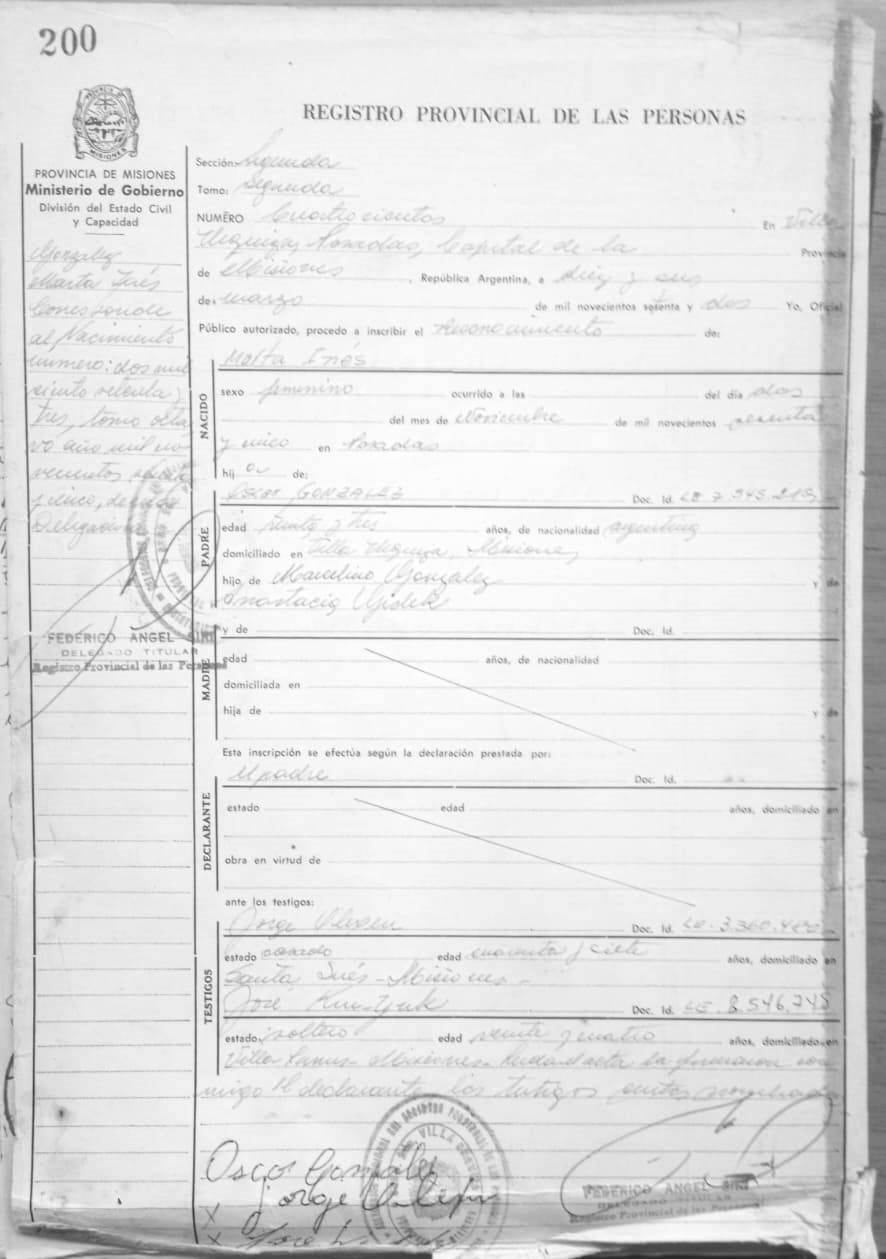 200
REGISTRO PROVINCIAL DE LAS PERSONAS
PROVINCIA DE MISIONES
Ministerio de Gobierno
División del Estado Civil
y Capacidad
Gonzalez
Marta Inés
Corresponde
al Nacimiento
numero: dos mil
ciento setenta y
tres, tomo octa
vo año mil no
vecientos sesenta
y cinco, de esta
Delegación
FEDERICO ANGEL SIRI
DELEGADO TITULAR
Registro Provincial de las Personas
Sección: Segunda
Tomo: Segundo
NUMERO Cuatrocientos En Villa
Urquiza, Posadas, Capital de la Provincia
de Misiones, República Argentina, a diez y seis
de: marzo de mil novecientos setenta y dos Yo, Oficial
Público autorizado, procedo a inscribir el Reconocimiento de:
NACIDO
Marta Inés
sexo femenino ocurrido a las del día dos
del mes de Noviembre de mil novecientos sesenta
y cinco en Posadas
hij a de:
PADRE
Oscar GONZALEZ Doc. Id. LE 7.545.
edad y tres años, de nacionalidad argentina
domiciliado en Villa Urquiza, Misiones
hijo de Marcelino Gonzalez y de
Anastacia
MADRE
y de Doc. Id.
edad años, de nacionalidad
domiciliada en
hija de y de
Esta inscripción se efectúa según la declaración prestada por:
DECLARANTE
El padre Doc. Id.
estado edad años, domiciliado en
obra en virtud de
ante los testigos:
TESTIGOS
Jorge Doc. Id. LE. 3.360.
estado casado edad cuarenta y siete años, domiciliado en
Santa Inés - Misiones -
José Doc. Id. LE. 8.546.745
estado soltero edad veinte y cuatro años, domiciliado en
Villa Lanus - Misiones. Leida el acta la firmaron con
migo el declarante y los testigos
Oscar Gonzalez
Jorge
Jose
FEDERICO ANGEL SIRI
DELEGADO TITULAR
Registro Provincial de las Personas